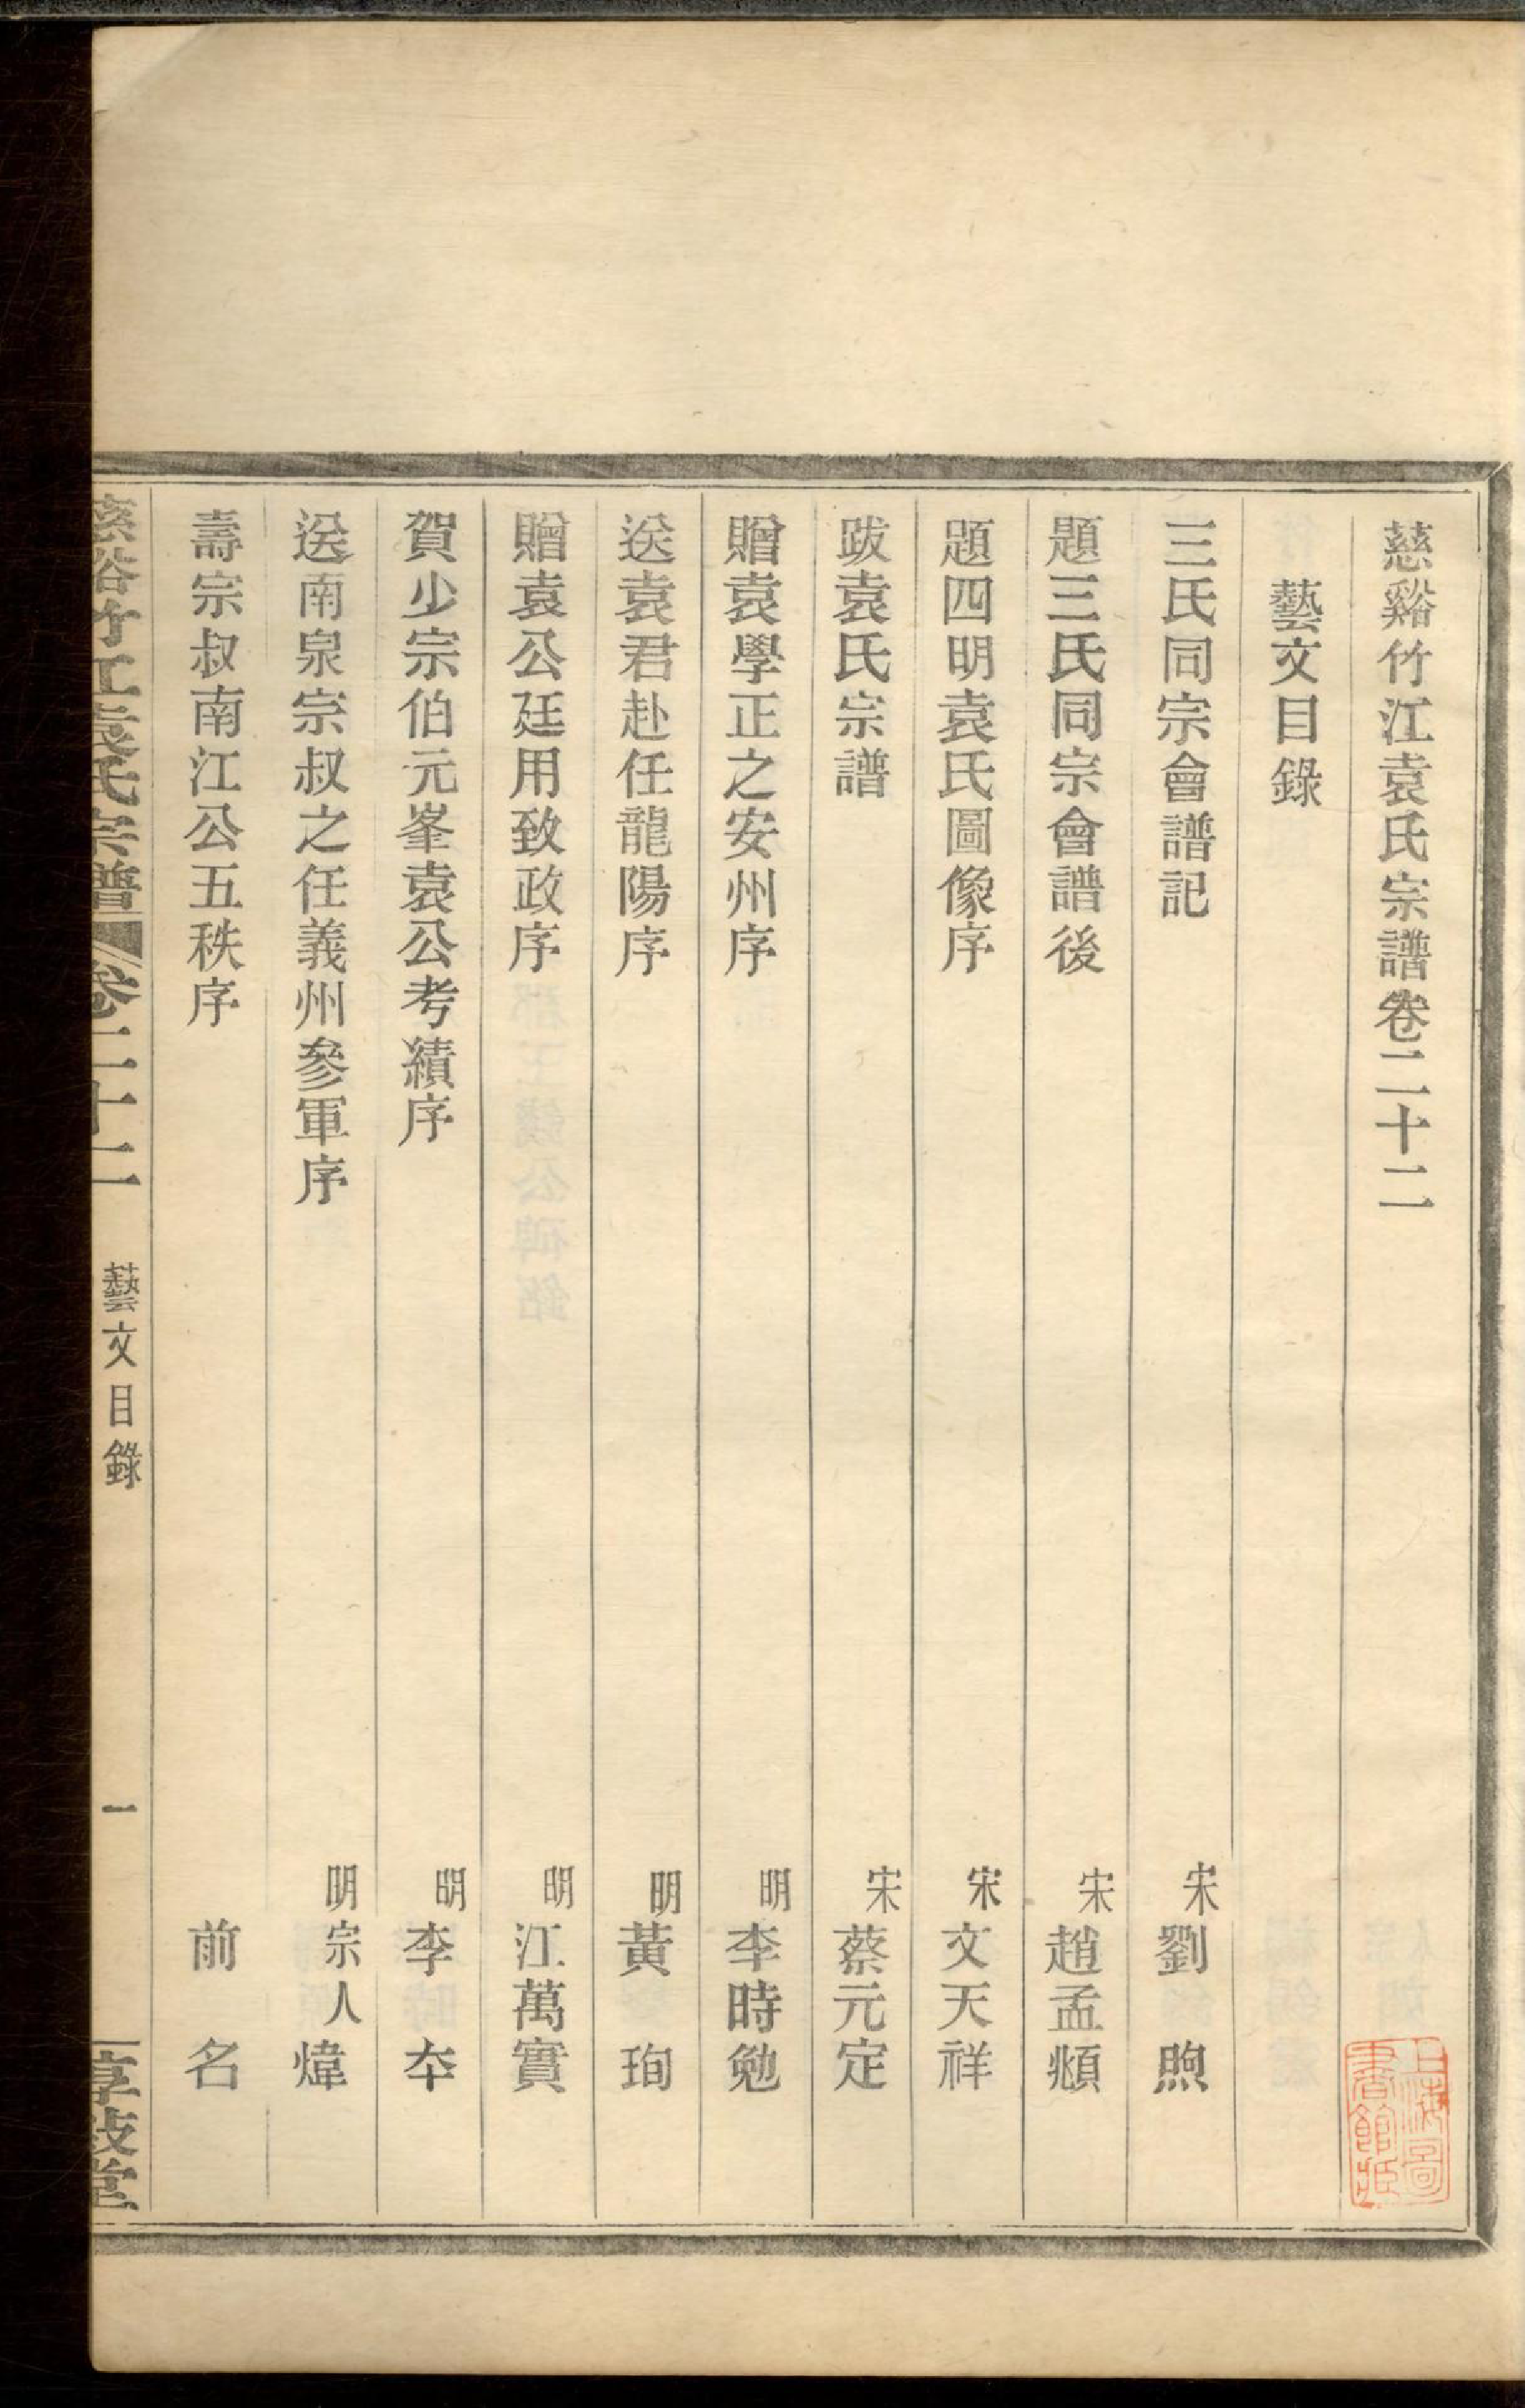 慈谿竹江袁氏宗譜卷二十二
藝文目錄
三氏同宗會譜記 宋 劉煦
題三氏同宗會譜後 宋 趙孟頫
題四明袁氏圖像序 宋 文天祥
跋袁氏宗譜 宋 蔡元定
贈袁學正之安州序 明 李時勉
送袁君赴任龍陽序 明 黃珣
贈袁公廷用致政序 明 江萬實
賀少宗伯元峯袁公考績序 明 李本
送南泉宗叔之任義州參軍序 明宗人煒
壽宗叔南江公五秩序 前名
慈谿竹江袁氏宗譜 卷二十二 藝文目錄 一
上海圖書館藏